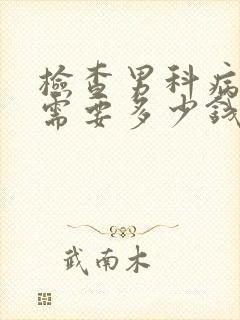 檢查男科病
需要多少錢
武南木